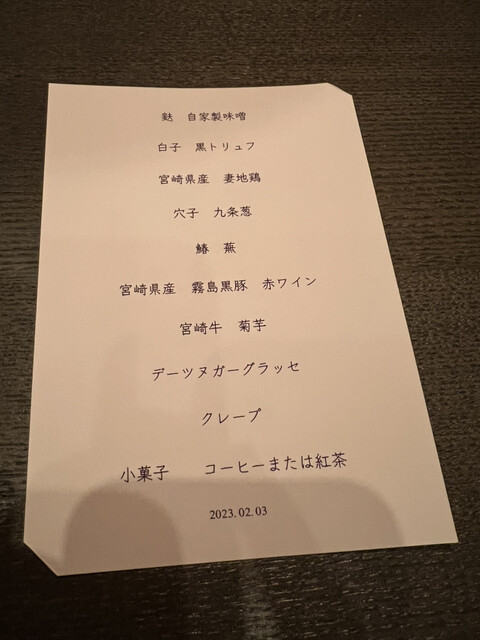 麩　自家製味噌
白子　黒トリュフ
宮崎県産　妻地鶏
穴子　九条葱
鰆　蕪
宮崎県産　霧島黒豚　赤ワイン
宮崎牛　菊芋
デーツヌガーグラッセ
クレープ
小菓子　　コーヒーまたは紅茶
2023.02.03